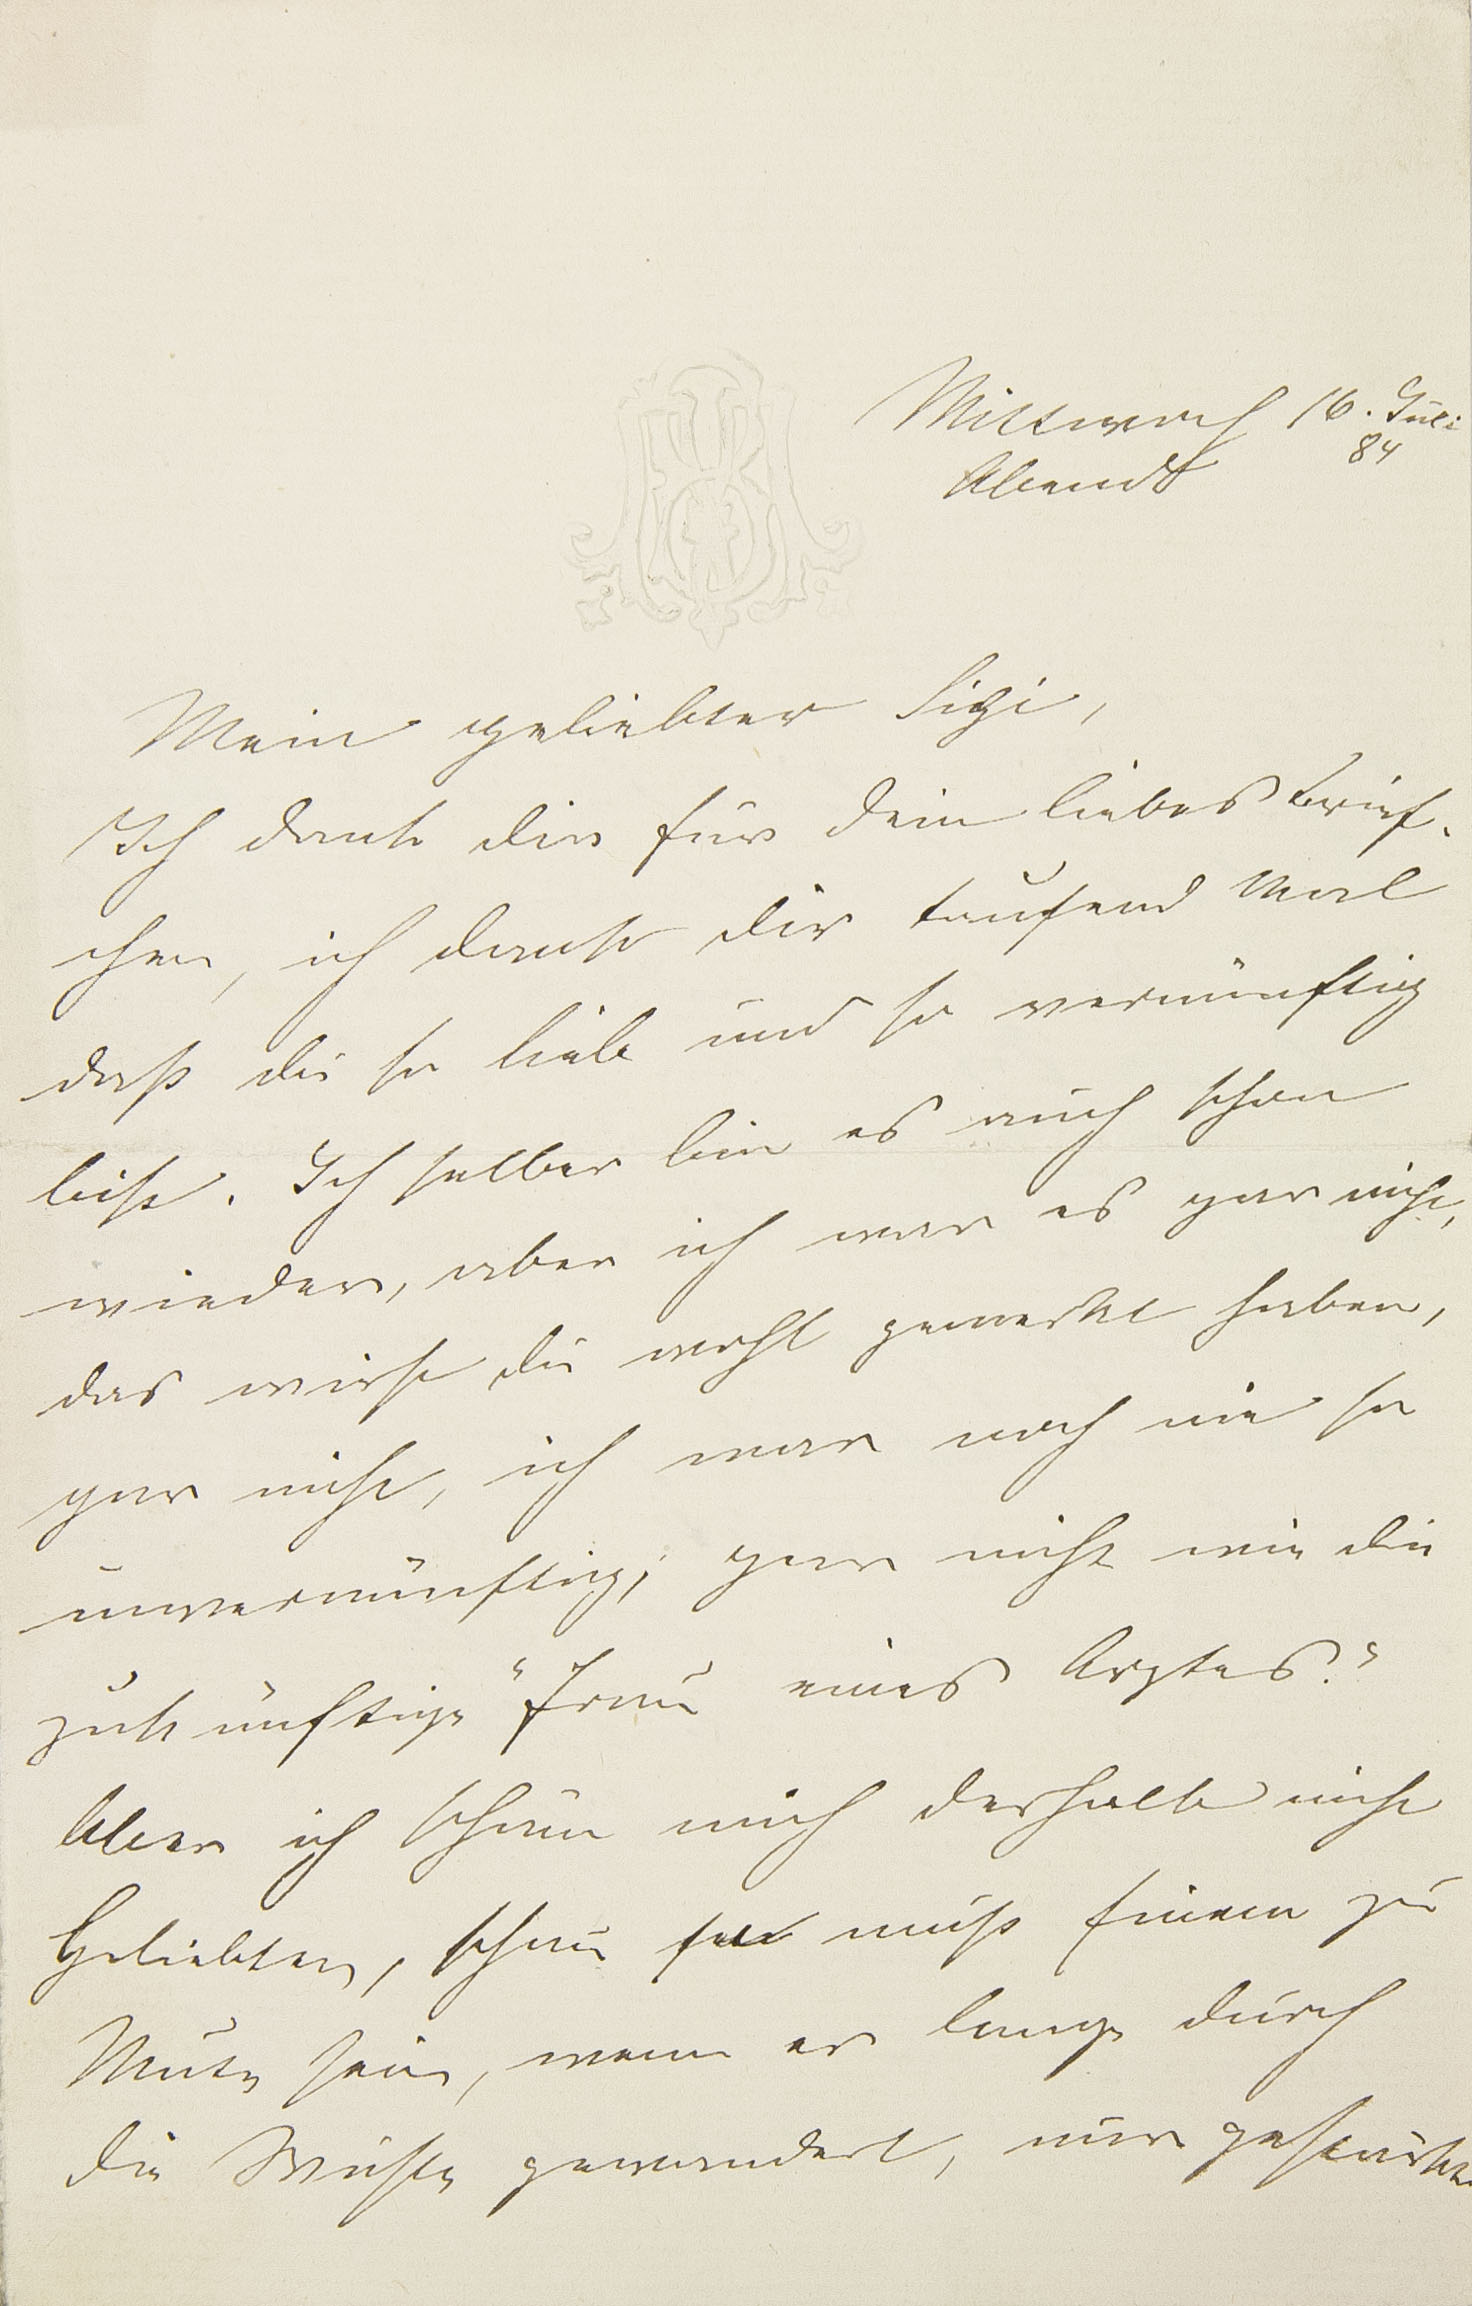 Mittwoch 16. Juli
84
Abends
Mein geliebter Sigi,
Ich danke dir für dein liebes Brief-
chen, ich danke dir tausend Mal
daß du so lieb und so vernünftig
bist. Ich selber bin es auch schon
wieder, aber ich war es gar nicht,
das wirst du wohl gemerkt haben,
gar nicht, ich war noch nie so
unvernünftig; gar nicht wie die
zukünftige "Frau eines Arztes."
Aber ich schäm mich deshalb nicht
Geliebter, schau so muß Einem zu
Mute sein, wenn er lange durch
die Wüste gewandert, nur gestärkt